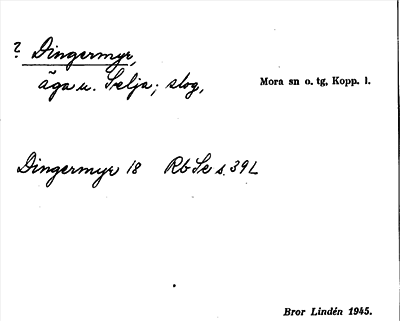 ? Dingermyr,
äga u. Selja; slog,
Mora sn o. tg, Kopp. l.
Dingermyr 18 Rb Se s. 39 L
Bror Lindén 1945.